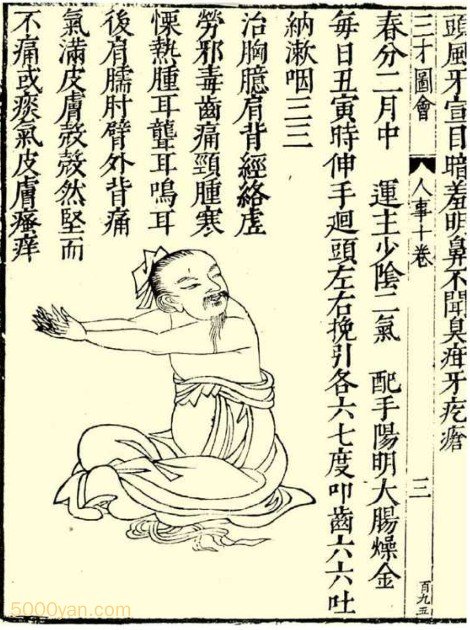 頭風牙宣日暗羞明鼻不聞臭疳牙疙瘡
三才圖會
人事十卷
三
百九五
春分二月中 運主少陰二氣 配手陽明大腸燥金
每日丑寅時伸手迴頭左右挽引各六七度叩齒六六吐
納漱咽三三
治胸臆肩背經絡虛
勞邪毒齒痛頸腫寒
慄熱腫耳聾耳鳴耳
後肩臑肘臂外背痛
氣滿皮膚殼殼然堅而
不痛或瘙氣皮膚瘙痒
5000yan.com